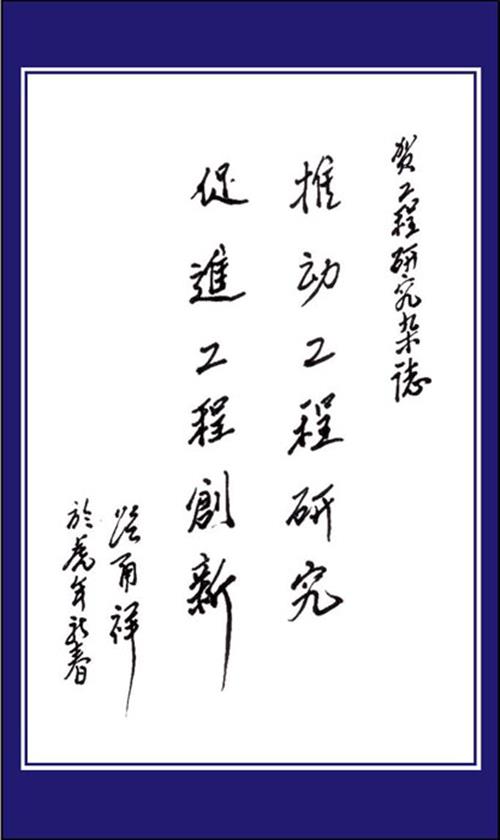 贺工程研究杂誌
推动工程研究
促進工程創新
路甬祥
於虎年新春